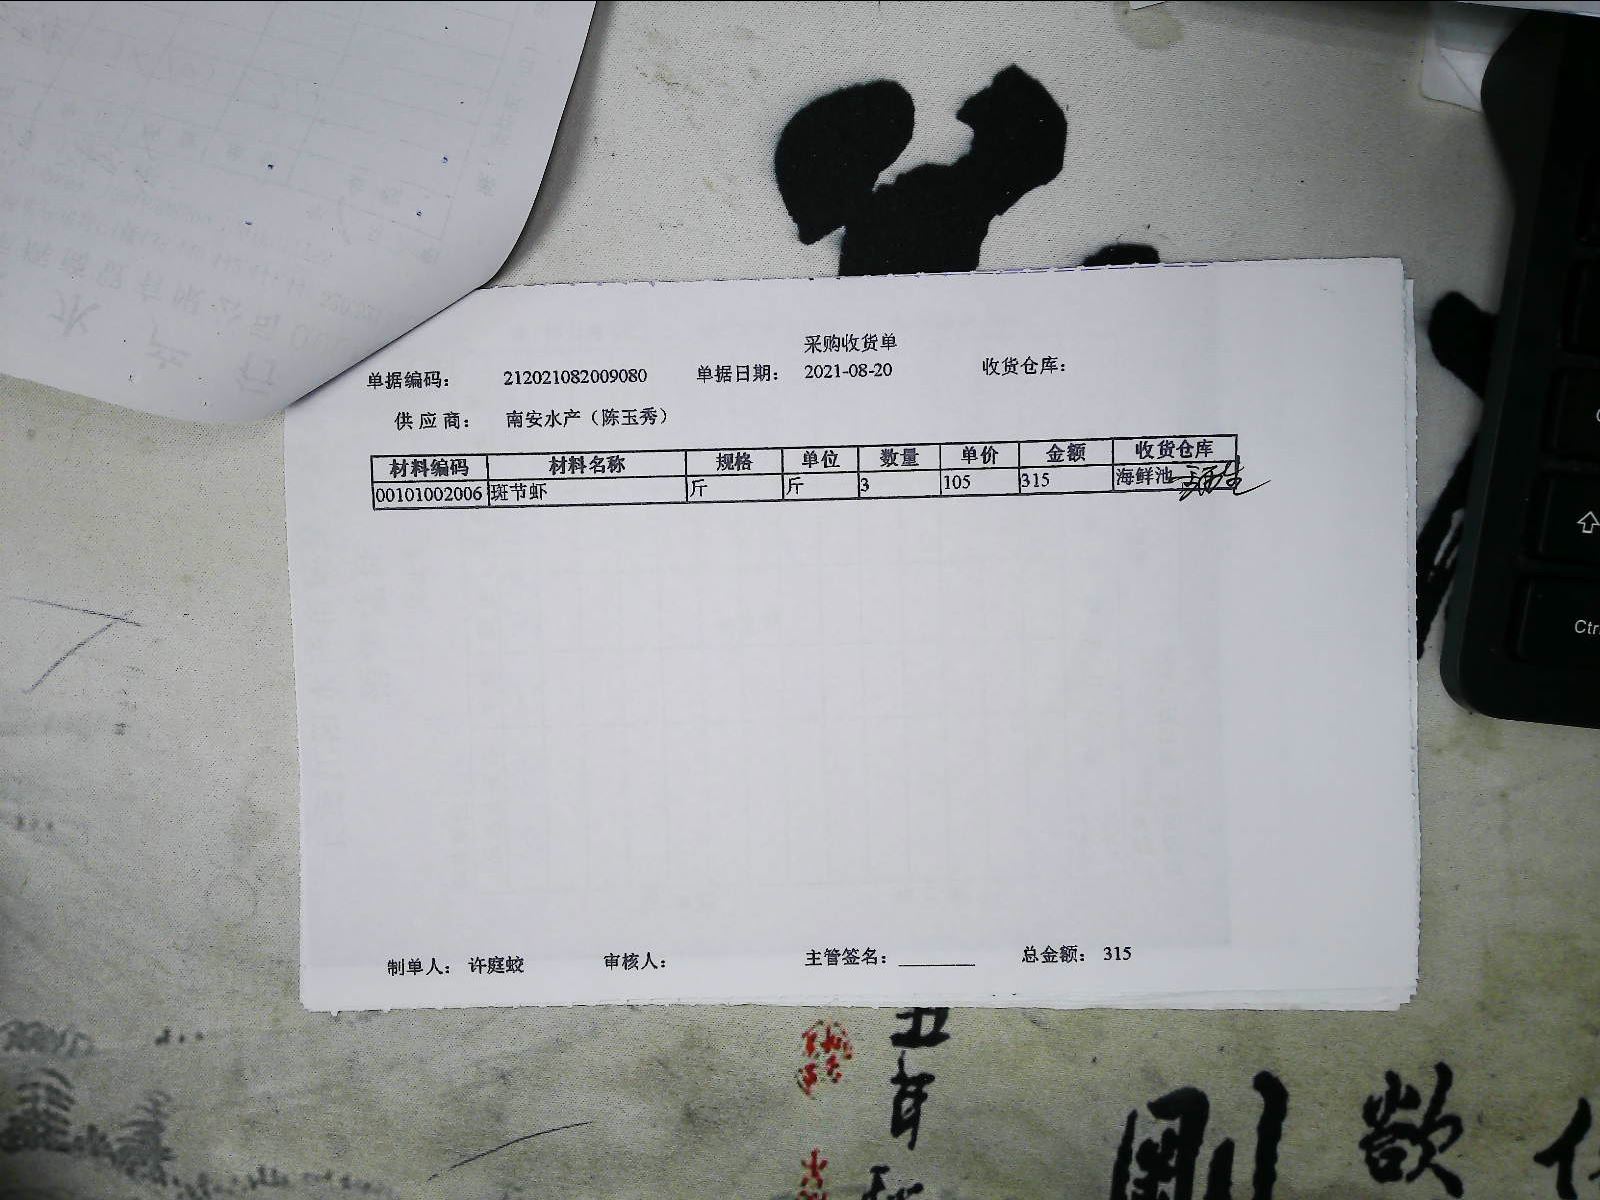 采购收货单
单据编码： 212021082009080 单据日期： 2021-08-20 收货仓库：
供 应 商： 南安水产（陈玉秀）
材料编码 材料名称 规格 单位 数量 单价 金额 收货仓库
00101002006 斑节虾 斤 斤 3 105 315 海鲜池
制单人： 许庭蛟 审核人： 主管签名：________ 总金额： 315
五年
剛 欲
Ctrl